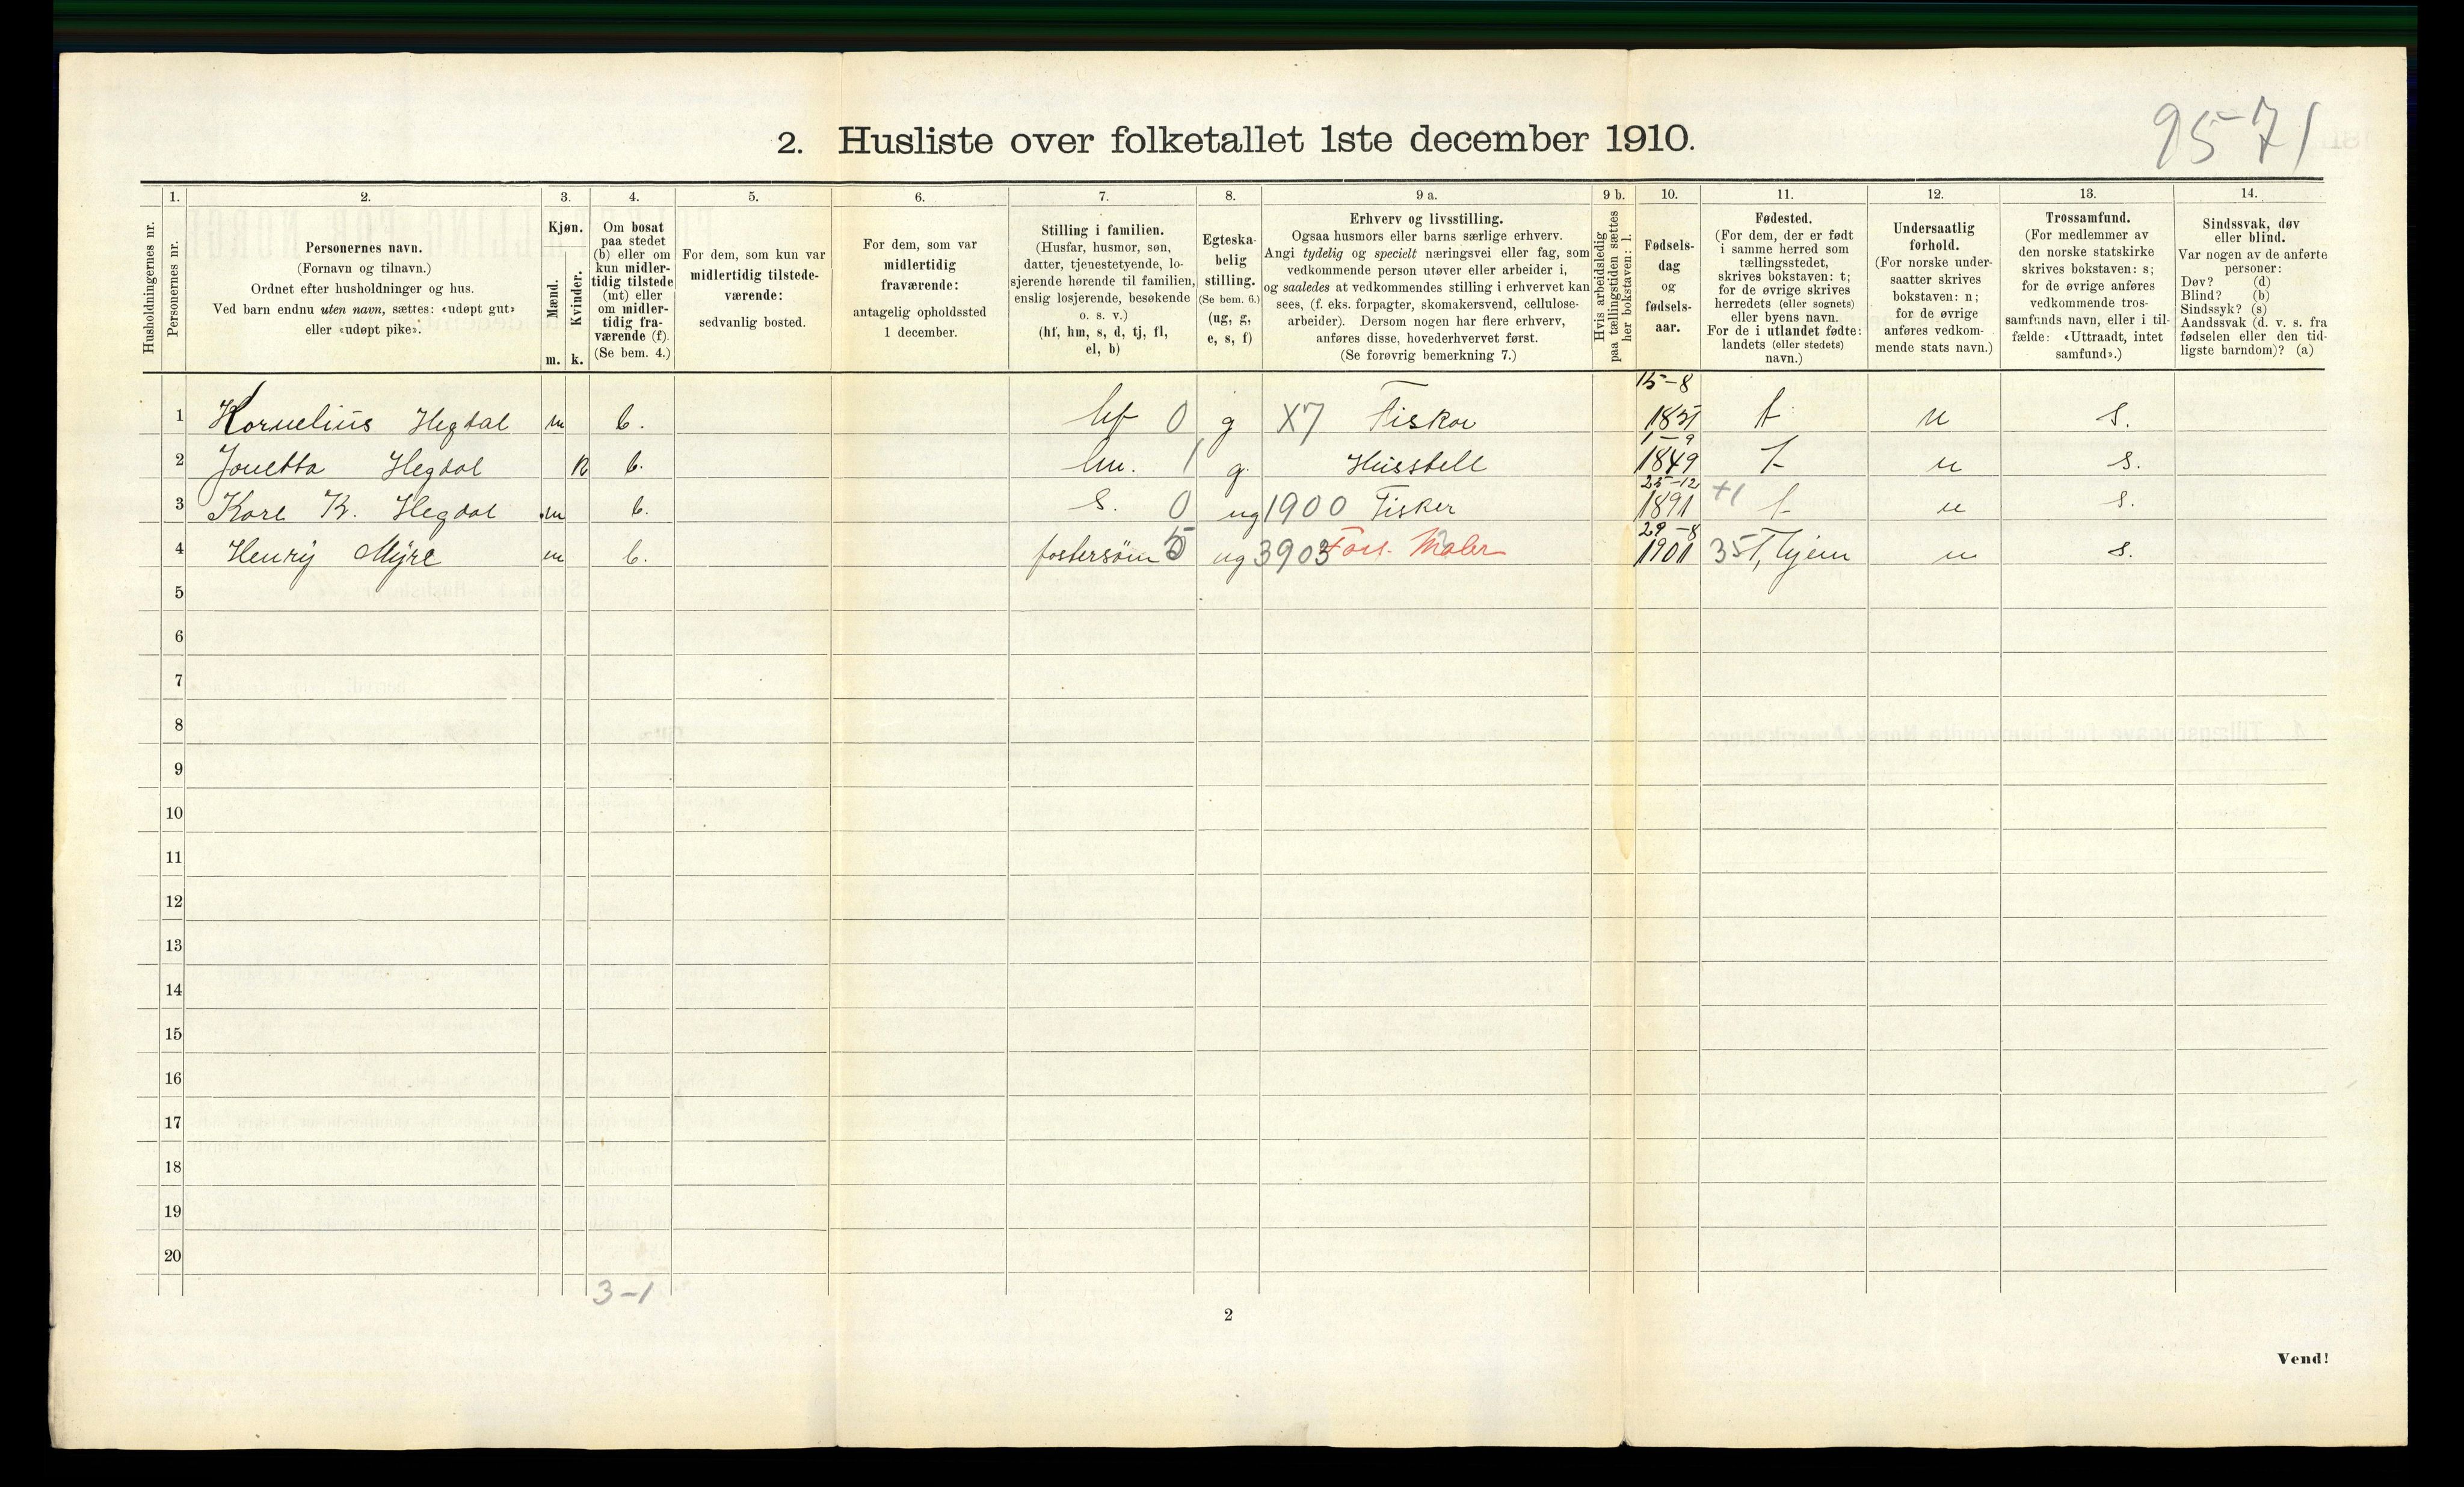 95-71
2. Husliste over folketallet 1ste december 1910.
1. 2. 3. 4. 5. 6. 7. 8. 9 a. 9 b. 10. 11. 12. 13. 14.
Husholdningernes nr.
Personernes nr.
Personernes navn.
(Fornavn og tilnavn.)
Ordnet efter husholdninger og hus.
Ved barn endnu uten navn, sættes: «udøpt gut»
eller «udøpt pike».
Kjøn.
Mænd.
Kvinder.
m. k.
Om bosat
paa stedet
(b) eller om
kun midler-
tidig tilstede
(mt) eller
om midler-
tidig fra-
værende (f).
(Se bem. 4.)
For dem, som kun var
midlertidig tilstede-
værende:
sedvanlig bosted.
For dem, som var
midlertidig
fraværende:
antagelig opholdssted
1 december.
Stilling i familien.
(Husfar, husmor, søn,
datter, tjenestetyende, lo-
sjerende hørende til familien,
enslig losjerende, besøkende
o. s. v.)
(hf, hm, s, d, tj, fl,
el, b)
Egteska-
belig
stilling.
(Se bem. 6.)
(ug, g,
e, s, f)
Erhverv og livsstilling.
Ogsaa husmors eller barns særlige erhverv.
Angi tydelig og specielt næringsvei eller fag, som
vedkommende person utøver eller arbeider i,
og saaledes at vedkommendes stilling i erhvervet kan
sees, (f. eks. forpagter, skomakersvend, cellulose-
arbeider). Dersom nogen har flere erhverv,
anføres disse, hovederhvervet først.
(Se forøvrig bemerkning 7.)
Hvis arbeidsledig
paa tællingstiden sættes
her bokstaven: l.
Fødsels-
dag
og
fødsels-
aar.
Fødested.
(For dem, der er født
i samme herred som
tællingsstedet,
skrives bokstaven: t;
for de øvrige skrives
herredets (eller sognets)
eller byens navn.
For de i utlandet fødte:
landets (eller stedets)
navn.)
Undersaatlig
forhold.
(For norske under-
saatter skrives
bokstaven: n;
for de øvrige
anføres vedkom-
mende stats navn.)
Trossamfund.
(For medlemmer av
den norske statskirke
skrives bokstaven: s;
for de øvrige anføres
vedkommende tros-
samfunds navn, eller i til-
fælde: «Uttraadt, intet
samfund».)
Sindssvak, døv
eller blind.
Var nogen av de anførte
personer:
Døv? (d)
Blind? (b)
Sindssyk? (s)
Aandssvak (d. v. s. fra
fødselen eller den tid-
ligste barndom)? (a)
15-8
1 Kornelius Hegdal m b. hf 0 g X7 Fisker 1851 t n s.
1-9
2 Jonetta Hegdal k b. hm. 1 g. Husstell 1849 t n s.
25-12
3 Karl K. Hegdal m b. s. 0 ug 1900 Fisker 1891 +1 t n s.
29-8
4 Henry Myre m b. fostersøn 5 ug 3903 Fors. Maler 1901 35 Hjem n s.
5
6
7
8
9
10
11
12
13
14
15
16
17
18
19
20
3-1
2
Vend!